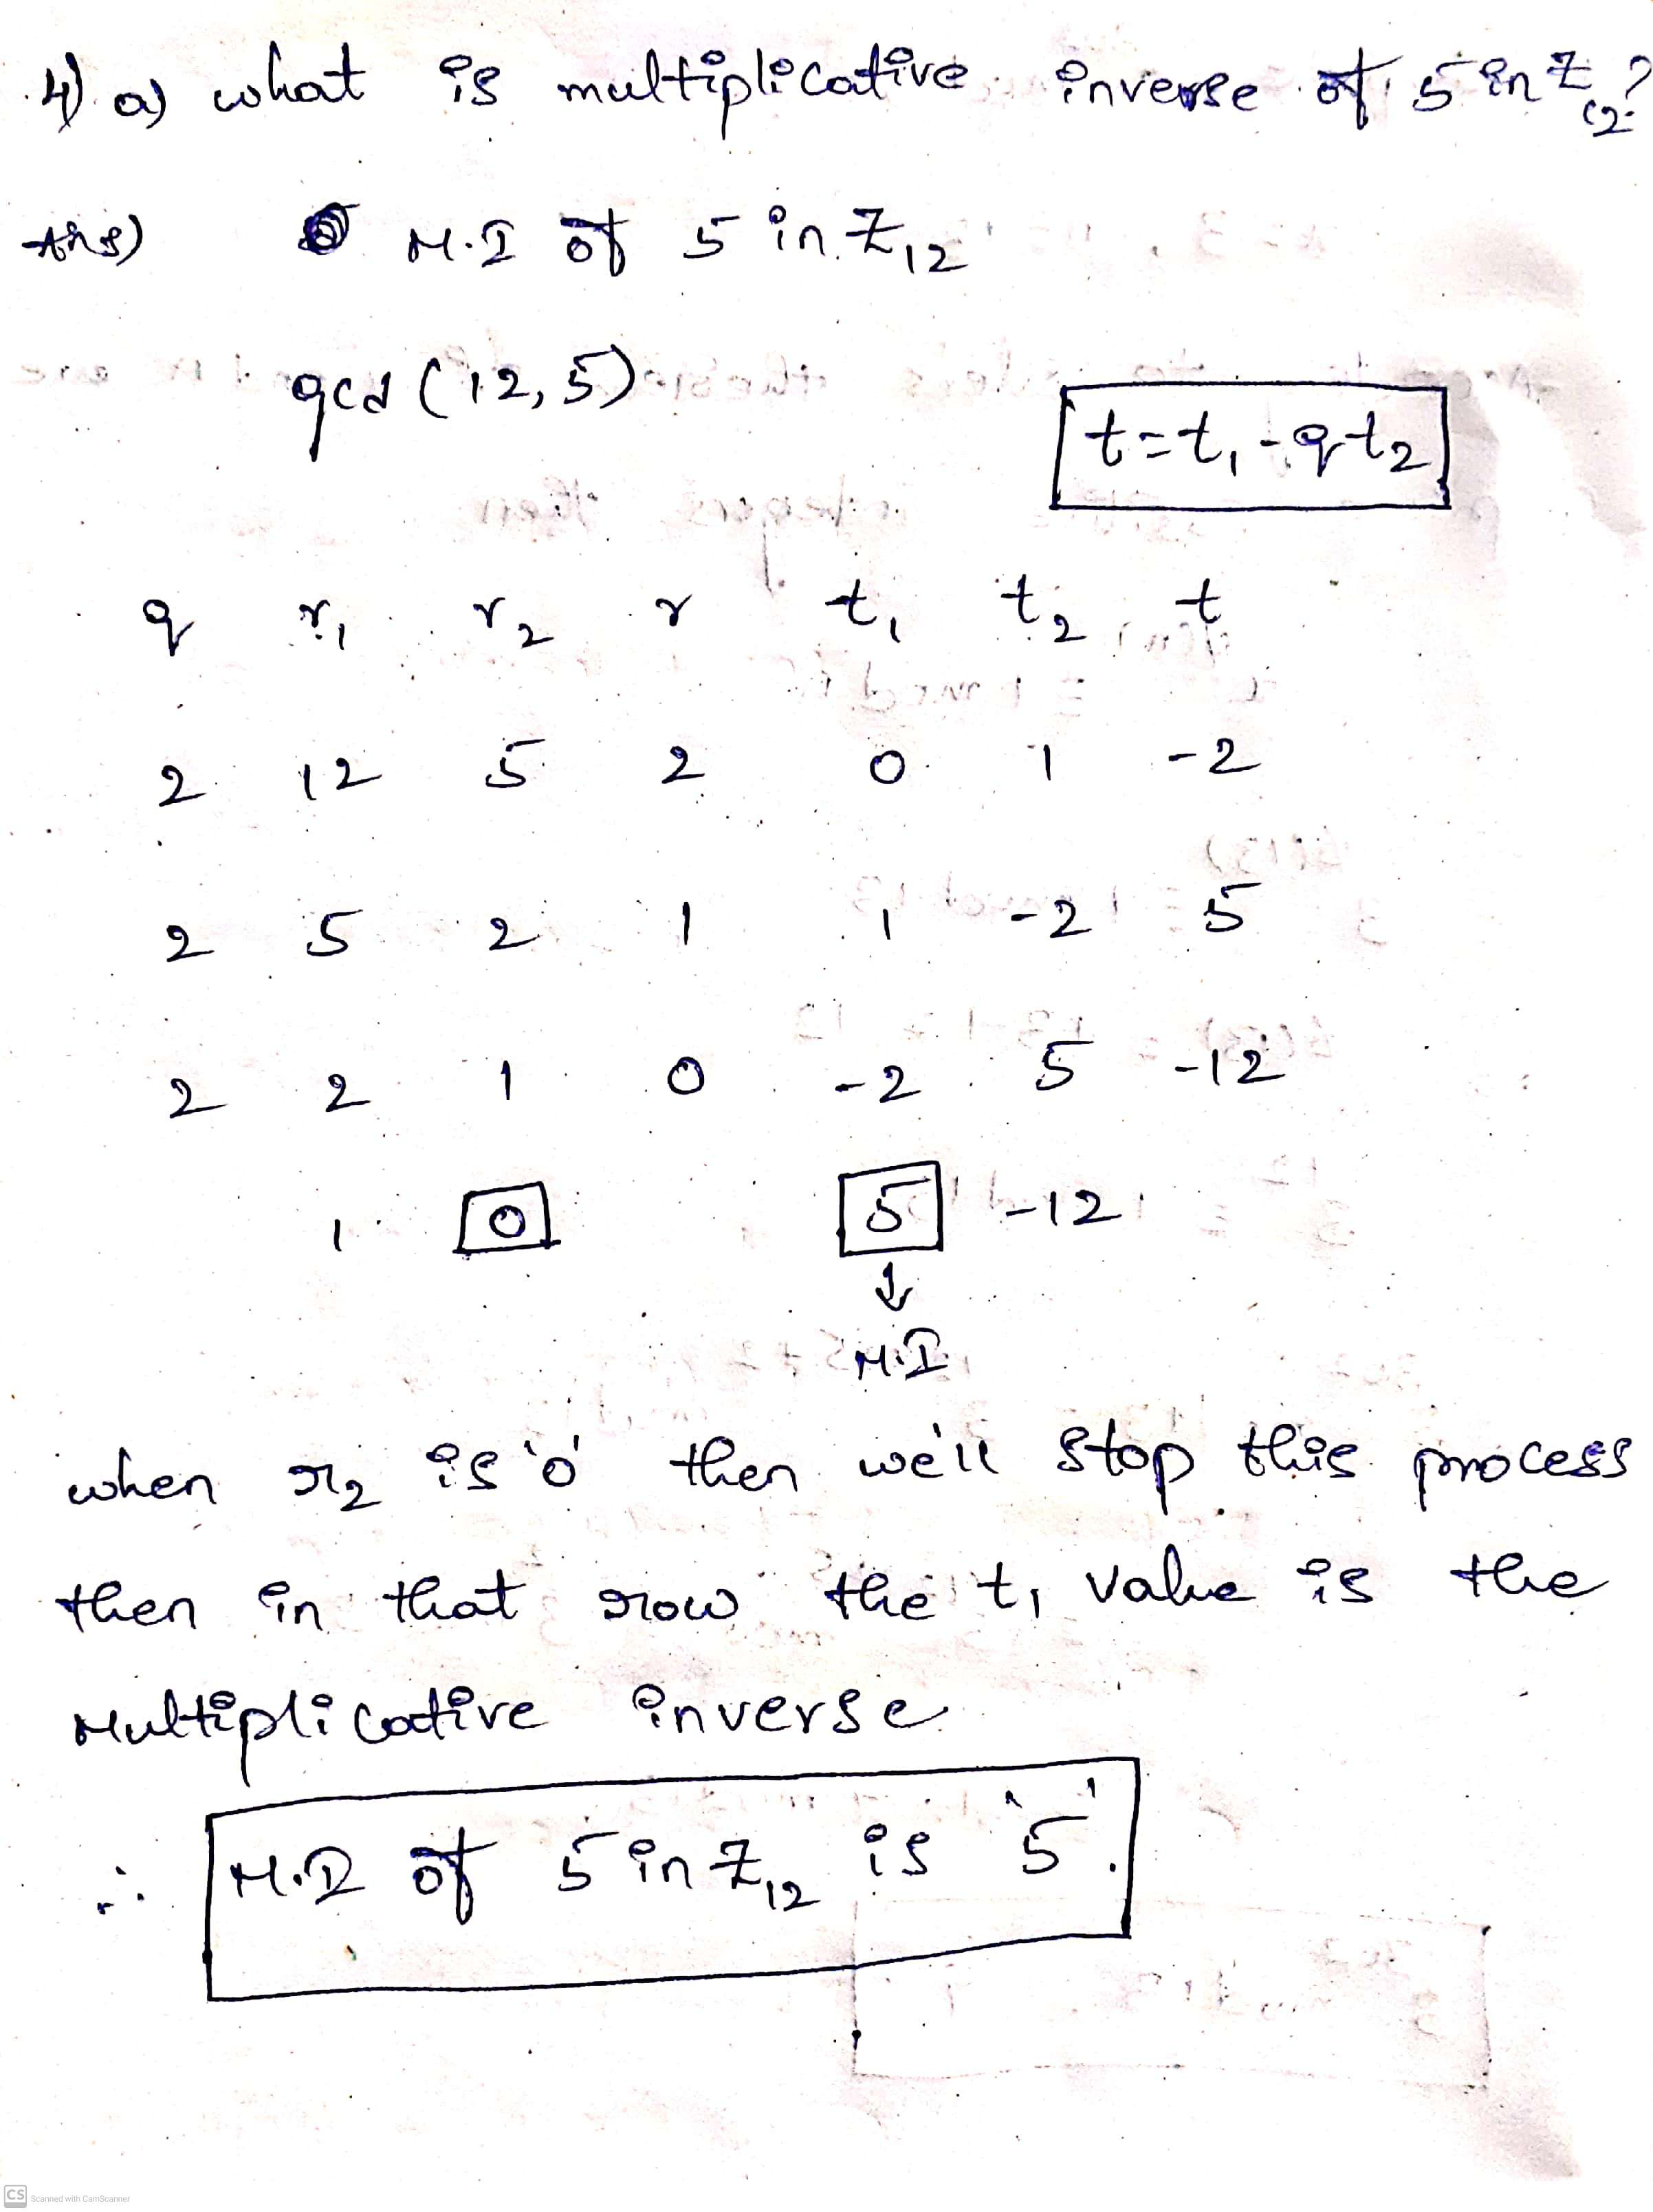 4) a) what is multiplicative inverse of 5 in Z12?
Ans) M.I of 5 in Z12
gcd (12, 5)
t = t1 - qt2
q r1 r2 r t1 t2 t
2 12 5 2 0 1 -2
2 5 2 1 1 -2 5
2 2 1 0 -2 5 -12
1 0 5 -12
↓
M.I
when r2 is '0' then we'll stop this process
then in that row the t1 value is the
Multiplicative inverse
∴ M.I of 5 in Z12 is '5'.
CS Scanned with CamScanner